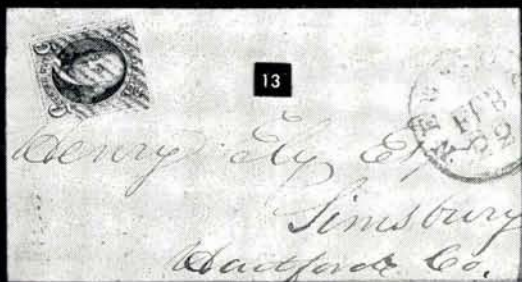 13
FEB
22
Henry Ely Esq
Simsbury
Hartford Co.